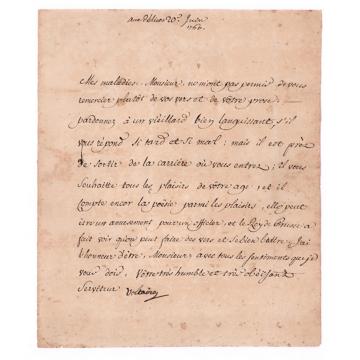 aux Délices 20e. Juin
1760.
Mes maladies, Monsieur, ne m'ont pas permis de vous
remercier plutôt de vos vers et de vôtre prose.
pardonnez à un vieillard bien languissant, s'il
vous répond si tard et si mal; mais il est près
de sortir de la carrière où vous entrez; il vous
souhaitte tous les plaisirs de vôtre age, et il
compte encor la poësie parmi les plaisirs, elle peut
être un amusement pour un officier, et le Roy de Prusse a
fait voir qu'on peut faire des vers et se bien battre. J'ai
l'honneur d'être, Monsieur, avec tous les sentiments que je
vous dois, Vôtre très humble et très obéissant
Serviteur Voltaire